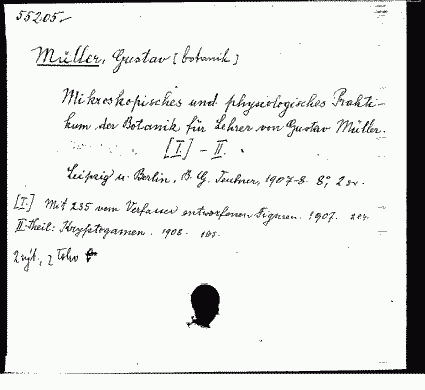 55205
Müller, Gustav [botanik]
Mikroskopisches und physiologisches Prakti-
kum der Botanik für Lehrer von Gustav Müller.
[I.] - II.
Leipzig u. Berlin, B. G. Teubner, 1907-8. 8°, 2
[I.] Mit 235 vom Verfasser entworfenen Figuren. 1907.
II. Theil: Kryptogamen. 1908.